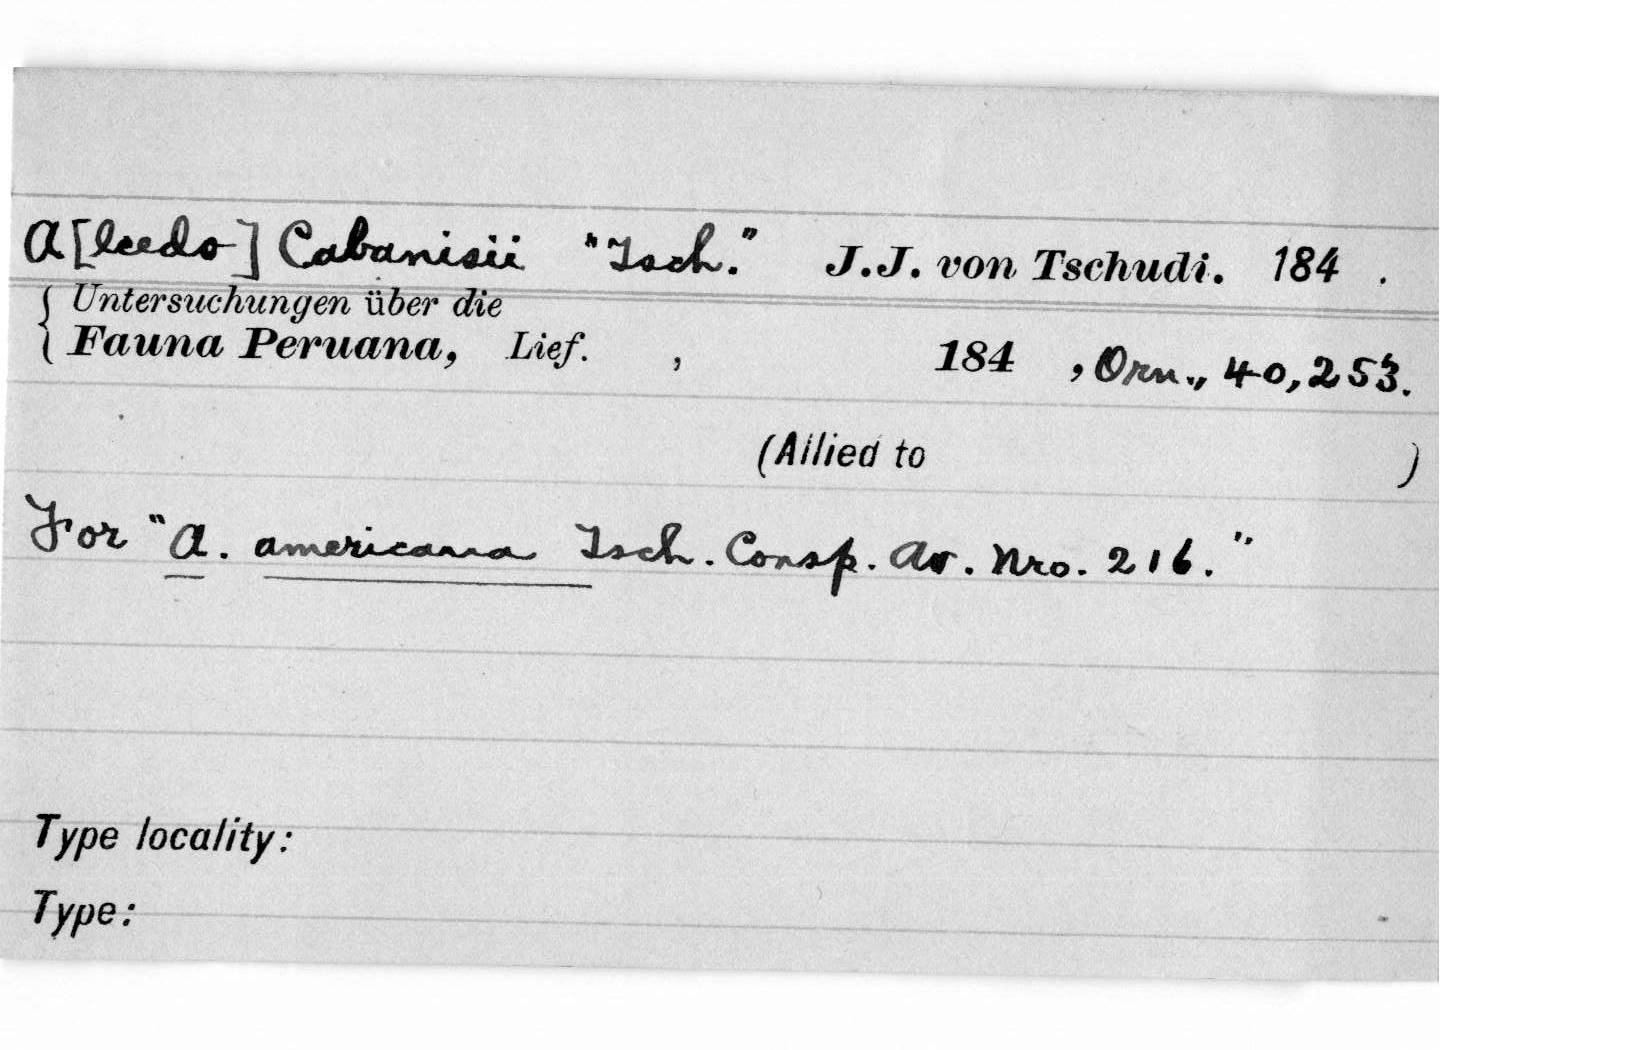 A[lcedo] Cabanisii "Tsch." J.J. von Tschudi. 184 .
Untersuchungen über die
Fauna Peruana, Lief. , 184 , Orn., 40, 253.
(Allied to )
For "A. americana Tsch. Consp. Av. Nro. 216."
Type locality:
Type: